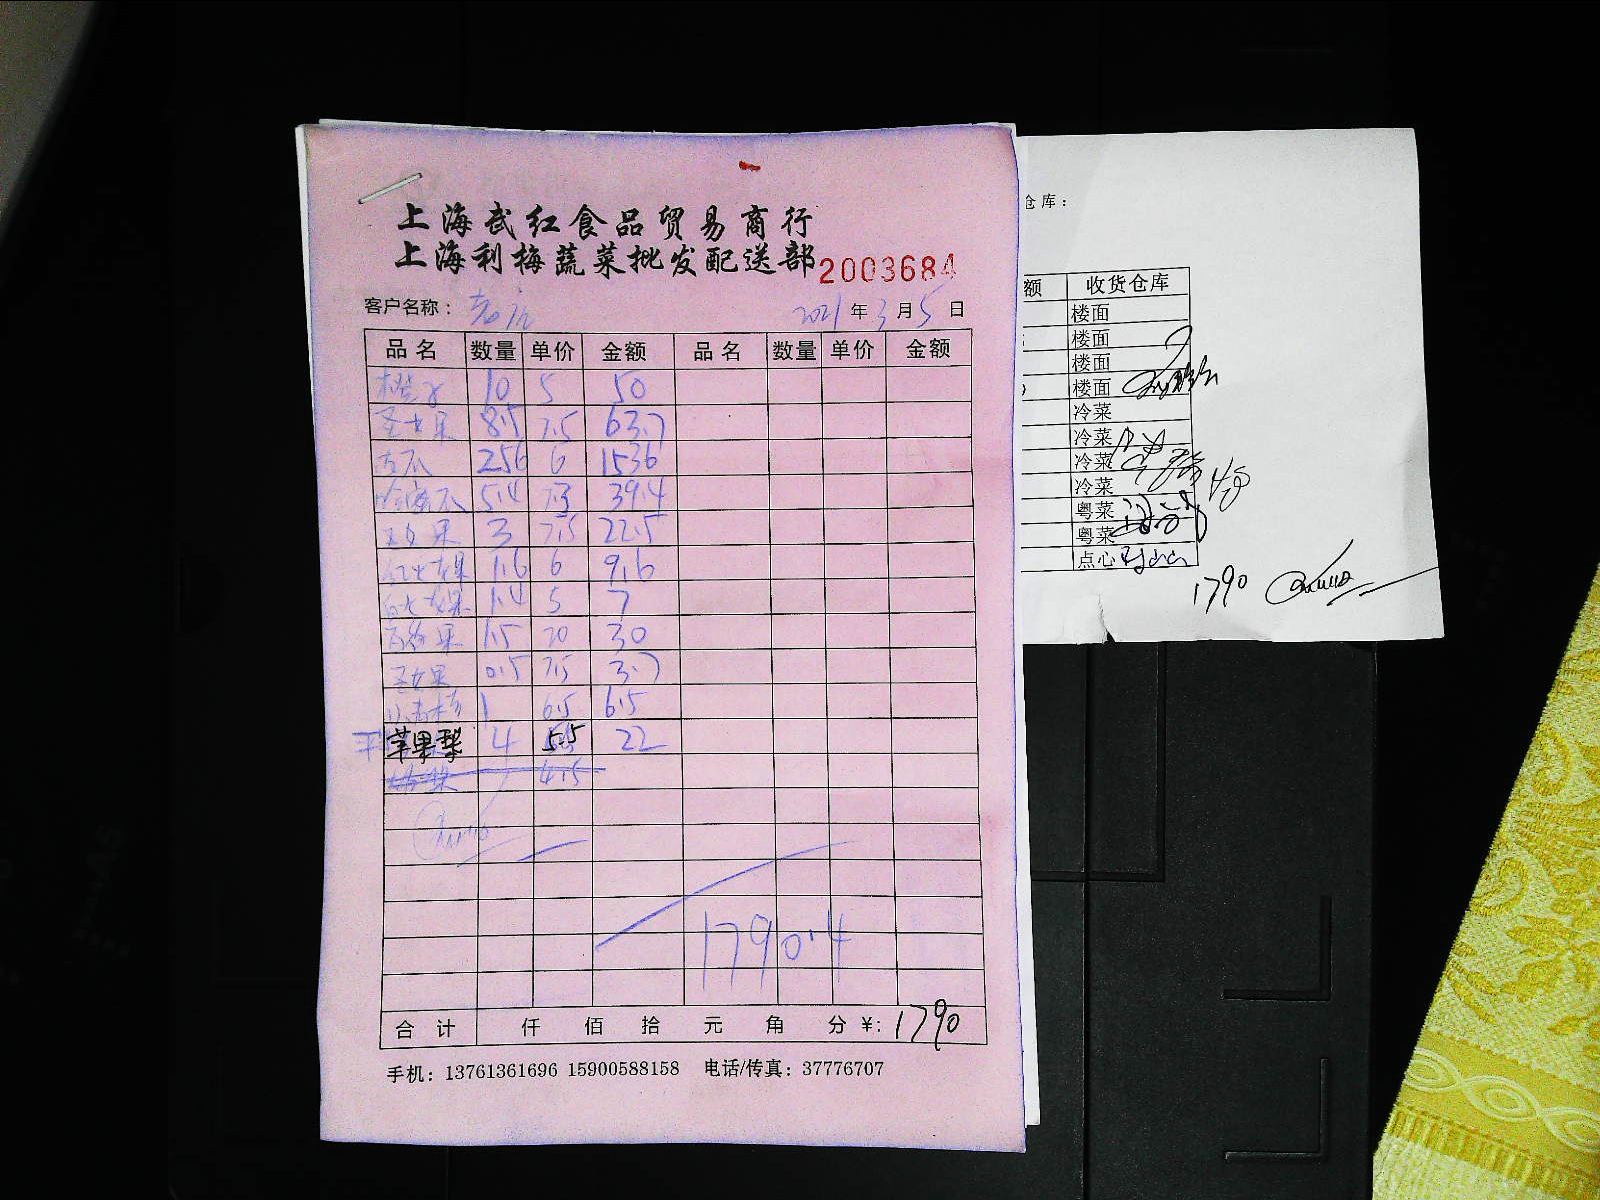 上海武红食品贸易商行
上海利梅蔬菜批发配送部 2003684
客户名称： 2021年3月5日
品名 数量 单价 金额 品名 数量 单价 金额
橙子 10 5 50
圣女果 8.5 7.5 63.7
西瓜 256 6 1536
哈密瓜 5.4 7.3 39.4
圣女果 3 7.5 22.5
红火龙果 1.6 6 9.6
白火龙果 1.4 5 7
百香果 1.5 20 30
圣女果 0.5 7.5 3.7
小青柠 1 6.5 6.5
苹果梨 4 5.5 22
4.5
1790.4
合计 仟 佰 拾 元 角 分 ¥: 1790
手机：13761361696 15900588158 电话/传真：37776707
仓库：
额 收货仓库
楼面
楼面
楼面
楼面
冷菜
冷菜
冷菜
冷菜
粤菜
粤菜
点心
1790